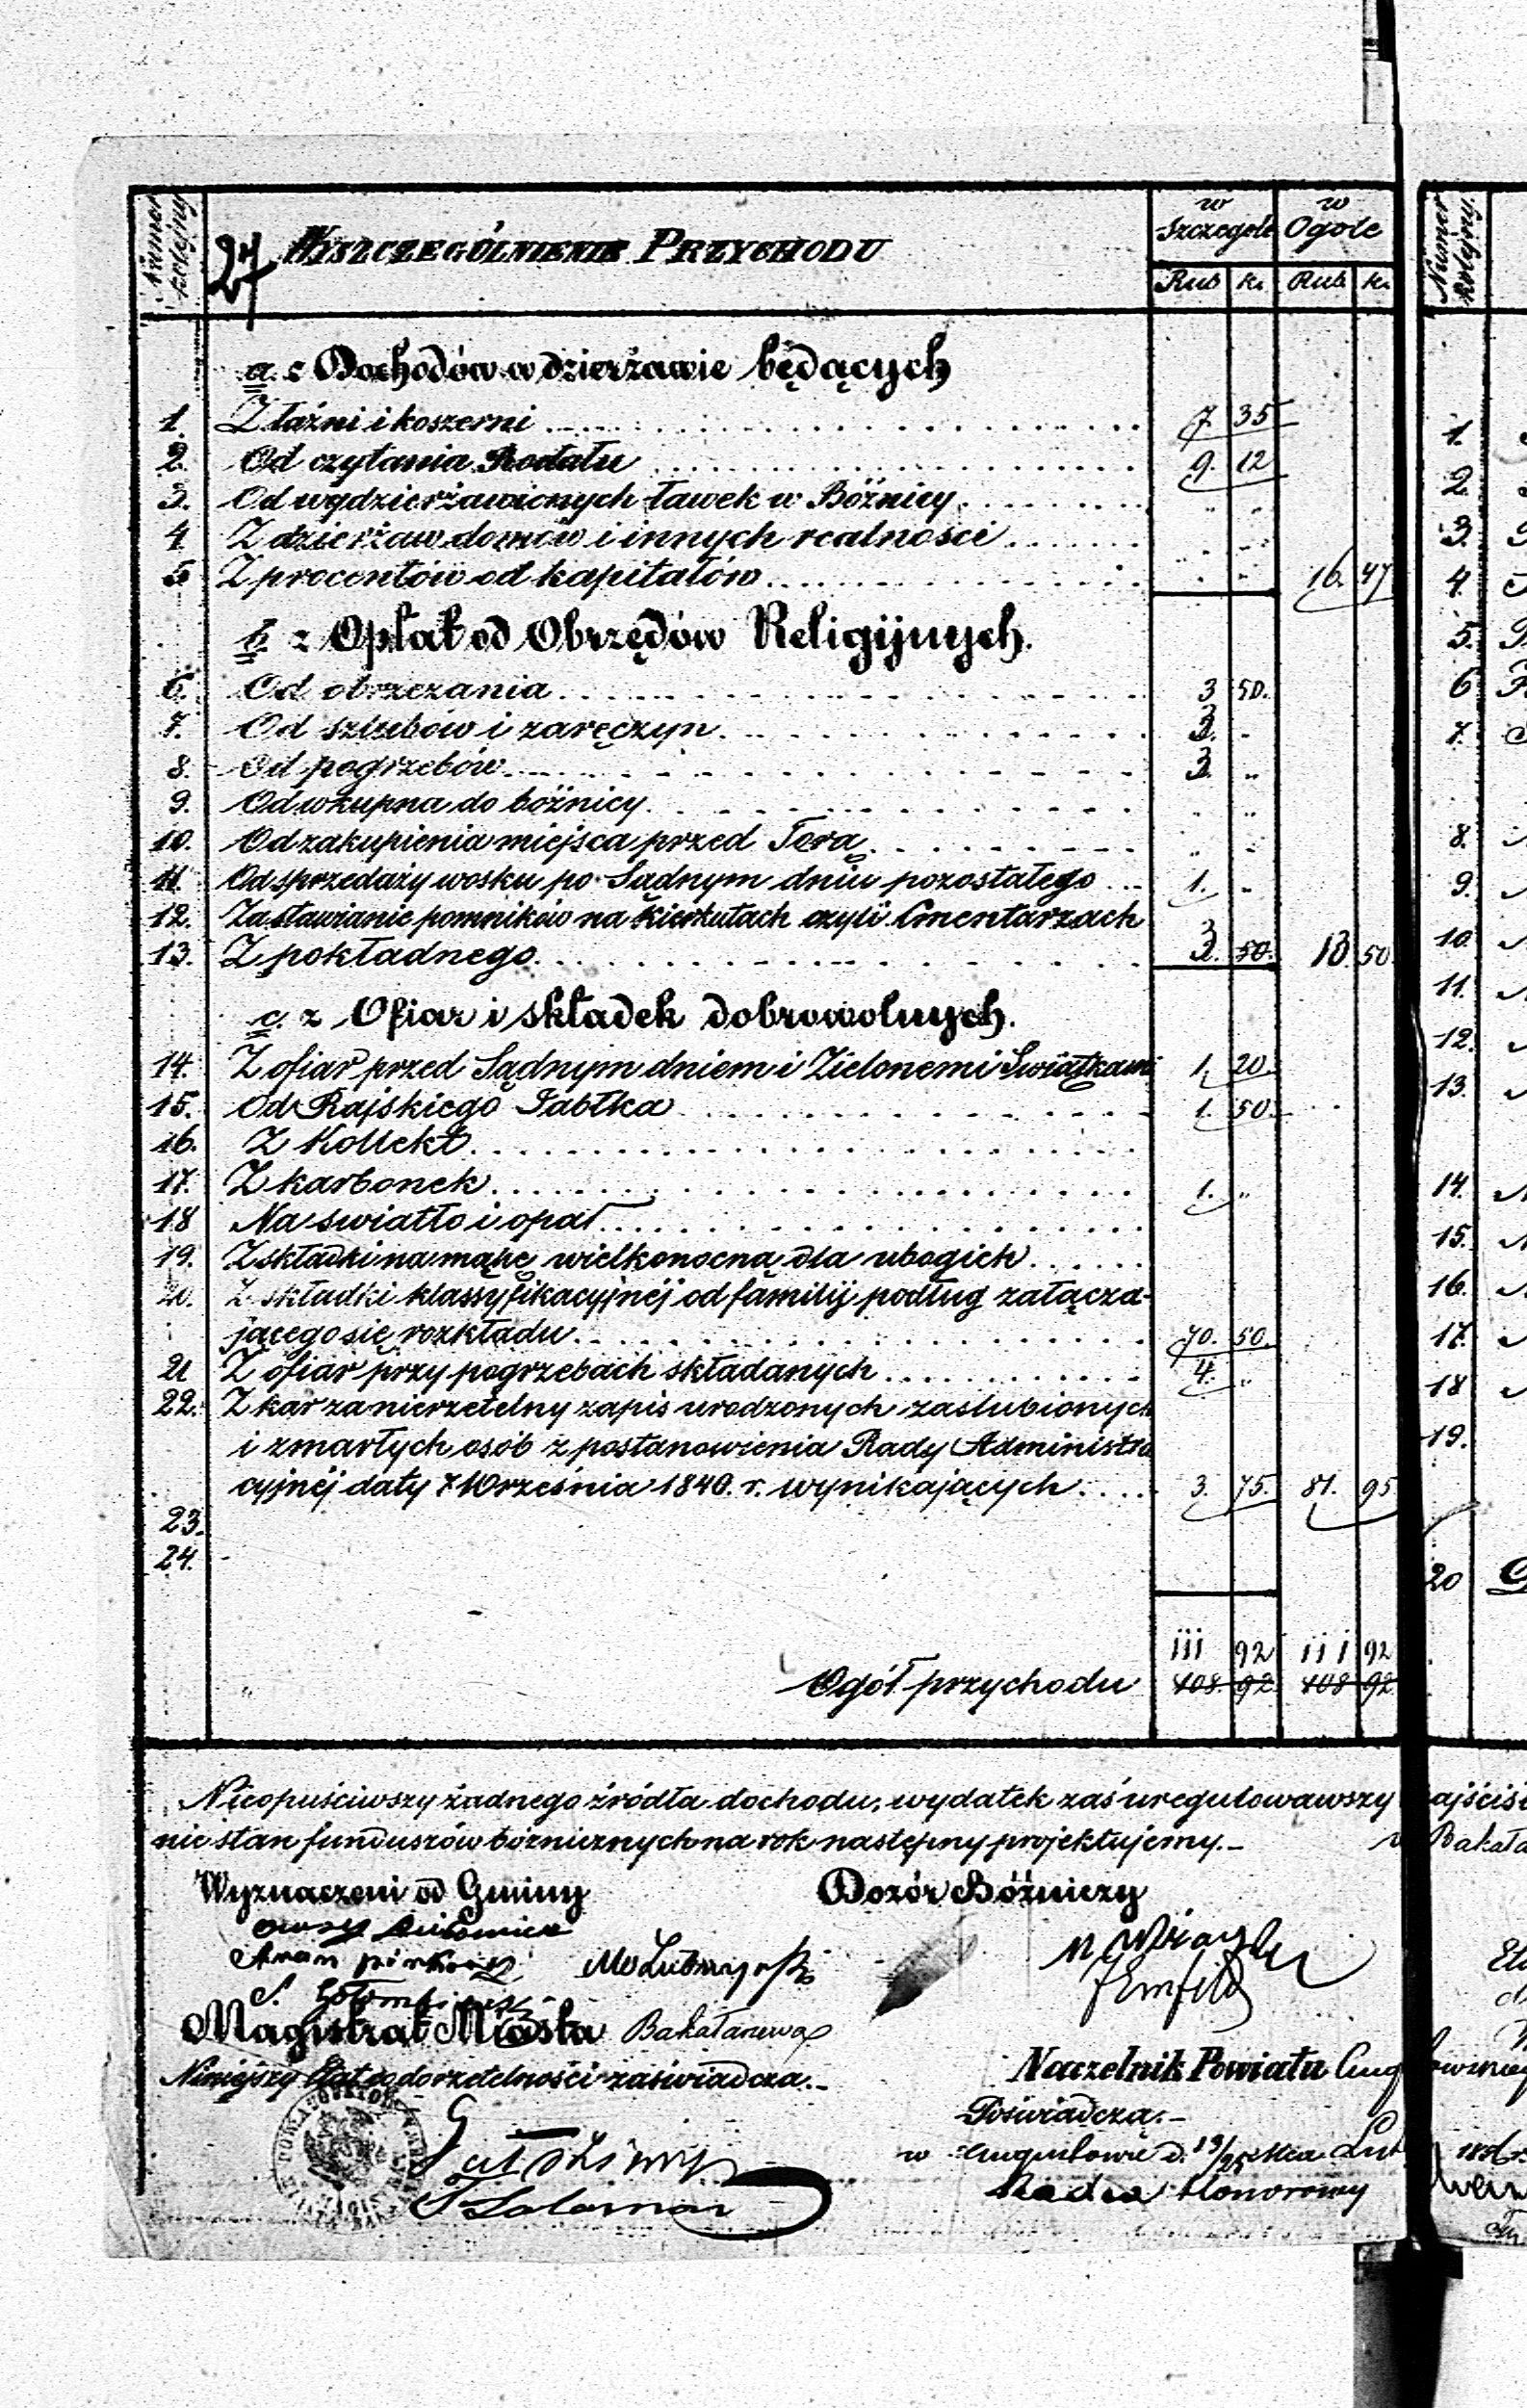 Numer kolejny
27 WYSZCZEGÓLNIENIE PRZYCHODU
w Szczegole
w Ogole
Rub k. Rub. k.
a. z Dochodów w dzierżawie będących
1. Z łaźni i koszerni 7 35
2. Od czytania Rodału 9. 12
3. Od wydzierżawionych ławek w Bóżnicy
4. Z dzierżaw domów i innych realności
5 Z procentów od kapitałów 16. 47
b. z Opłat od Obrzędów Religijnych.
6. Od obrzezania 3 50.
7. Od szlubów i zaręczyn 3.
8. Od pogrzebów 3.
9. Od wkupna do bóżnicy
10. Od zakupienia miejsca przed Torą
11. Od sprzedaży wosku po Sądnym dniu pozostałego 1.
12. Za stawianie pomników na kierkutach czyli Cmentarzach
13. Z pokładnego 3. 50. 13. 50
c. z Ofiar i składek dobrowolnych.
14. Z ofiar przed Sądnym dniem i Zielonemi Swiątkami 1. 20.
15. Od Rajskiego Jabłka 1. 50.
16. Z Kollekt
17. Z karbonek 1.
18 Na swiatło i opał
19. Z składki na mąkę wielkonocną dla ubogich
20. Z składki klassyfikacyjnéj od familij podług załącza-
jącego się rozkładu 70. 50.
21 Z ofiar przy pogrzebach składanych 4.
22. Z kar za nierzetelny zapis urodzonych zaslubionych
i zmarłych osób z postanowienia Rady Administra
cyjnéj daty 7 Września 1840. r. wynikających 3. 75. 81. 95
23.
24.
111 92 111 92
Ogół przychodu 108. 92 108 92
Nieopuściwszy żadnego źródła dochodu, wydatek zaś uregulowawszy
nie stan funduszów bóżnicznych na rok następny projektujemy.
Wyznaczeni od Gminy
Dozór Bóźniczy
Magistrat Miasta Bakałarzewa
Niniejszy Etat co do rzetelności zaświadcza.
Naczelnik Powiatu
Poświadcza.
w Augustowie d. 13/25 Mca
Radca Honorowy
Numer kolejny.
1.
2.
3.
4.
5.
6
7.
8.
9.
10.
11.
12.
13.
14.
15.
16.
17.
18
19.
20